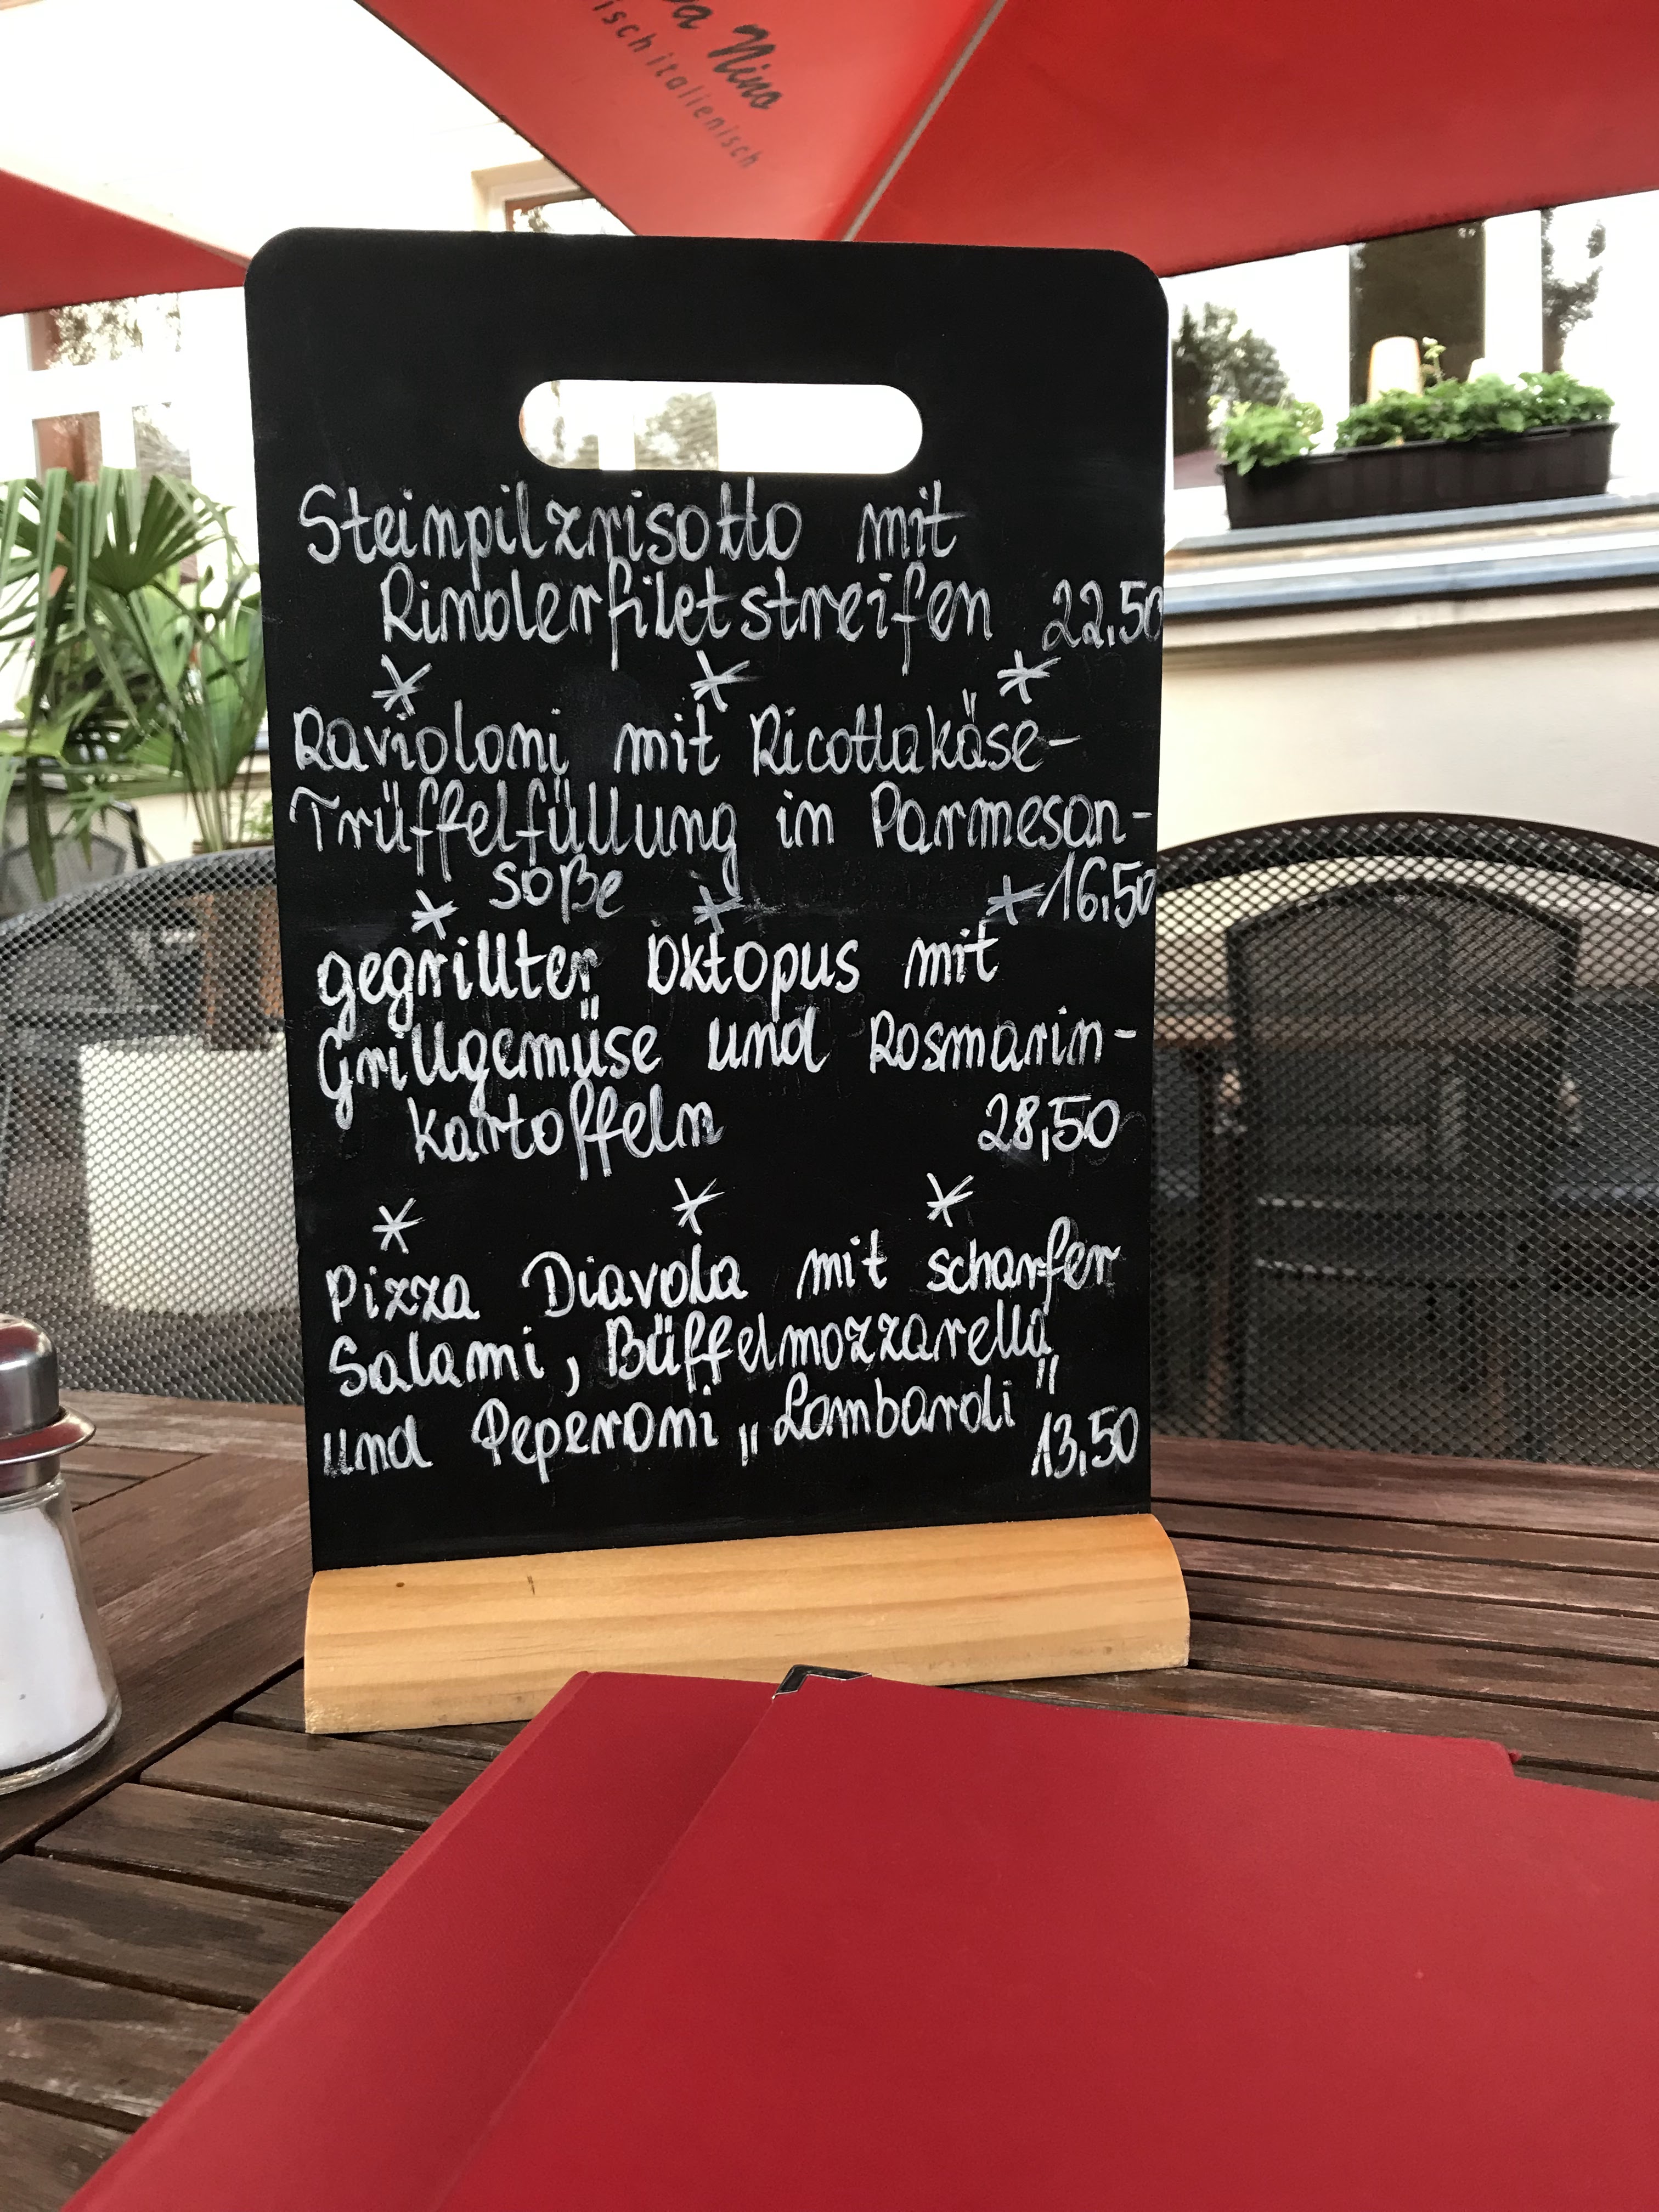 Nino
ischitalienisch
Steinpilzrisotto mit
Rinderfiletstreifen 22,50
* * *
Ravioloni mit Ricottakäse-
Trüffelfüllung in Parmesan-
soße
* * * 16,50
gegrillter Oktopus mit
Grillgemüse und Rosmarin-
kartoffeln 28,50
* * *
Pizza Diavola mit scharfer
Salami, Büffelmozzarella
und Peperoni „Lombardi" 13,50